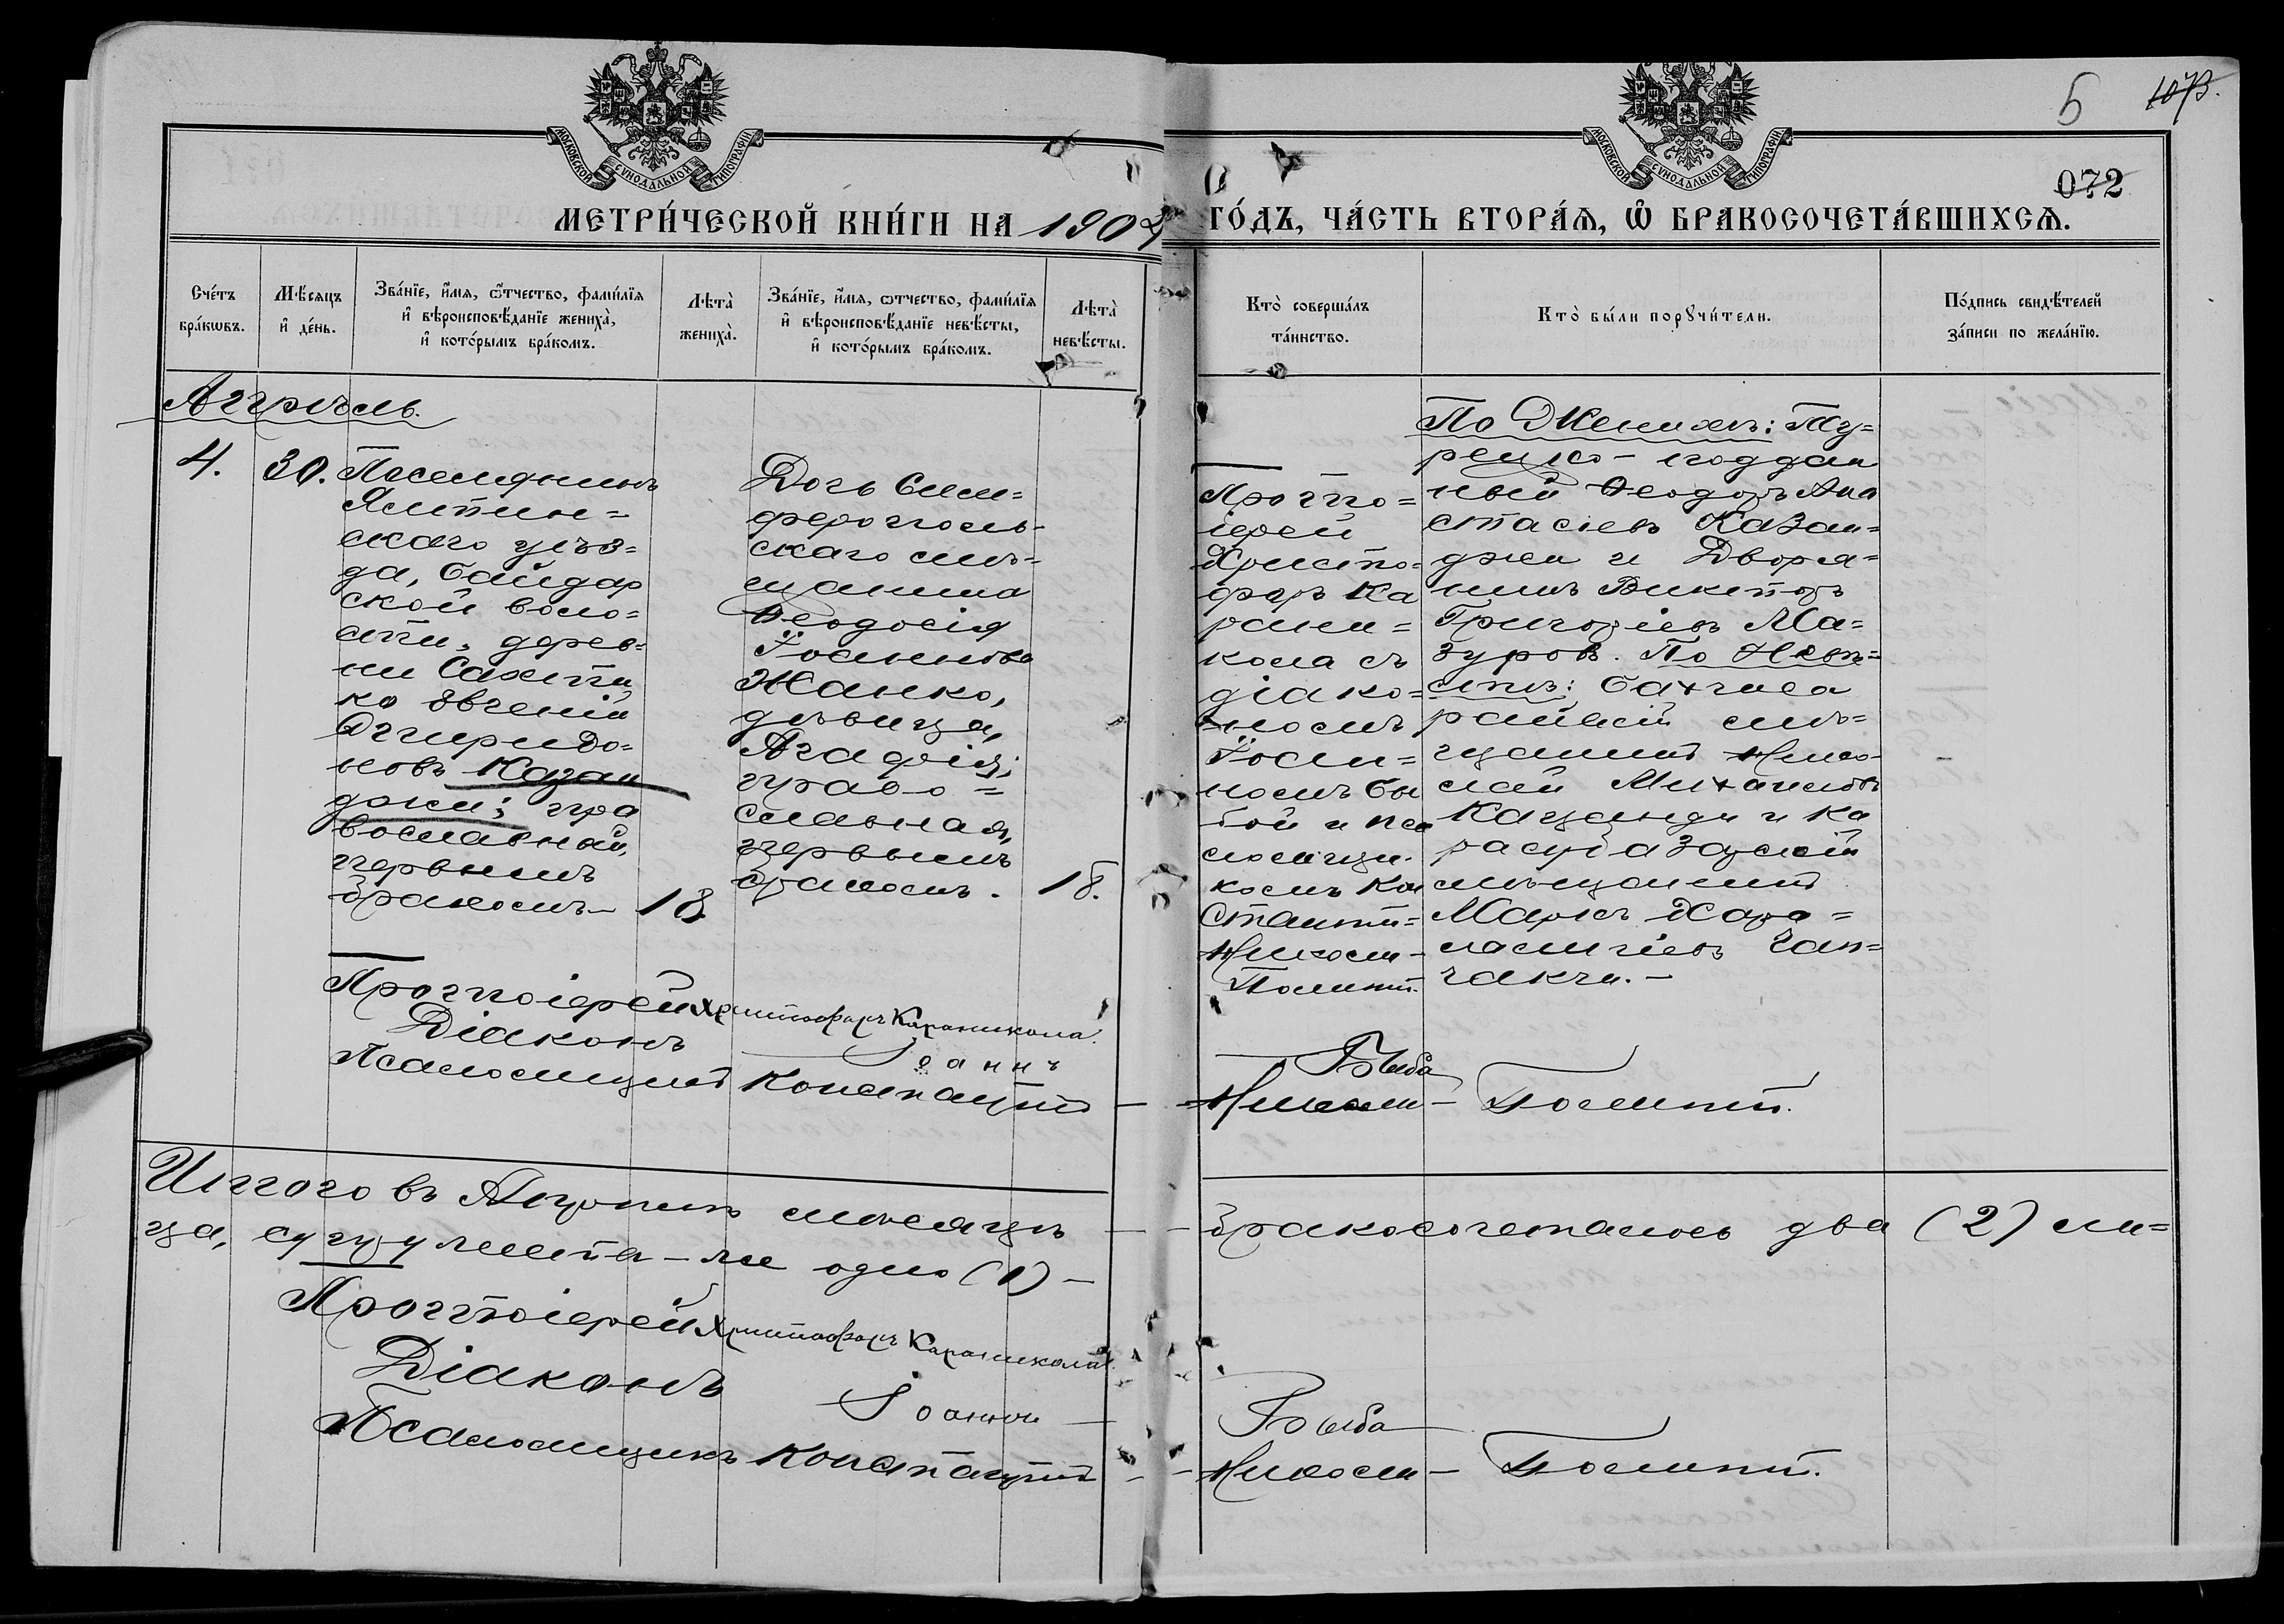 5 1073.
МОСКОВСКОЙ СѴНОДАЛЬНОЙ ТИПОГРАФІИ
МОСКОВСКОЙ СѴНОДАЛЬНОЙ ТИПОГРАФІИ
072
МЕТРИ́ЧЕСКОЙ КНИ́ГИ НА 1902 ГО́ДЪ, ЧА́СТЬ ВТОРА́Ѧ, Ѿ БРАКОСОЧЕТА́ВШИХСѦ.
Сче́тъ
бра́кѡвъ.
Мѣ́сяцъ
и҆ де́нь.
Зва́нїе, и҆́мя, ѻ҆́тчество, фами́лїя
и҆ вѣроисповѣ́данїе жениха̀,
и҆ кото́рымъ бра́комъ.
Лѣта̀
жениха̀.
Зва́нїе, и҆́мя, ѻ҆́тчество, фами́лїя
и҆ вѣроисповѣ́данїе невѣ́сты,
и҆ кото́рымъ бра́комъ.
Лѣта̀
невѣ́сты.
Кто̀ соверша́лъ
та́инство.
Кто̀ бы́ли порꙋчи́тели.
По́дпись свидѣ́телей
за́писи по жела́нїю.
Апрѣль.
4.
30.
Поселянинъ
Ялтин=
скаго уѣз=
да, Байдар
ской воло=
сти, дерев=
ни Сахтти
ко Евгеній
Спиридо=
новъ Казан
джи; пра
вославный,
первымъ
бракомъ—
18.
Дочь Сим=
ферополь-
скаго мѣ-
щанина
Ѳеодосія
Іоаннова
Жанко,
дѣвица,
Агафія;
право=
славная,
первымъ
бракомъ.
18.
Прото=
іерей
Христо=
форъ Ка
рани=
кола съ
діако=
номъ
Іоан=
номъ Бы
бой и пса
ломщи-
комъ Кон
стант.=
Николи-
Политт.
По Женихѣ: Ту=
рецко-поддан
ный Ѳеодоръ Ана
стасіевъ Казан=
джи и Дворя=
нинъ Викторъ
Григоріевъ Ма=
зуровъ. По Невѣ=
стѣ: Бахчиса
райскій мѣ=
щанинъ Нико-
лай Михаиловъ
Кацанди и Ка
расубазарскій
мѣщанинъ
Маркъ Хара=
лампіевъ Чап=
чакчи.—
Протоіерей Христофоръ Караникола.
Діаконъ Іоаннъ Быба
Псаломщикъ Констант. — Николи — Политт.
Итого въ Апрѣлѣ мѣсяцѣ — бракосочеталось два (2) ли=
ца, супружества-же одно (1) —
Протоіерей Христофоръ Караникола.
Діаконъ Іоаннъ — Быба
Псаломщикъ Констант. — Николи — Политт.